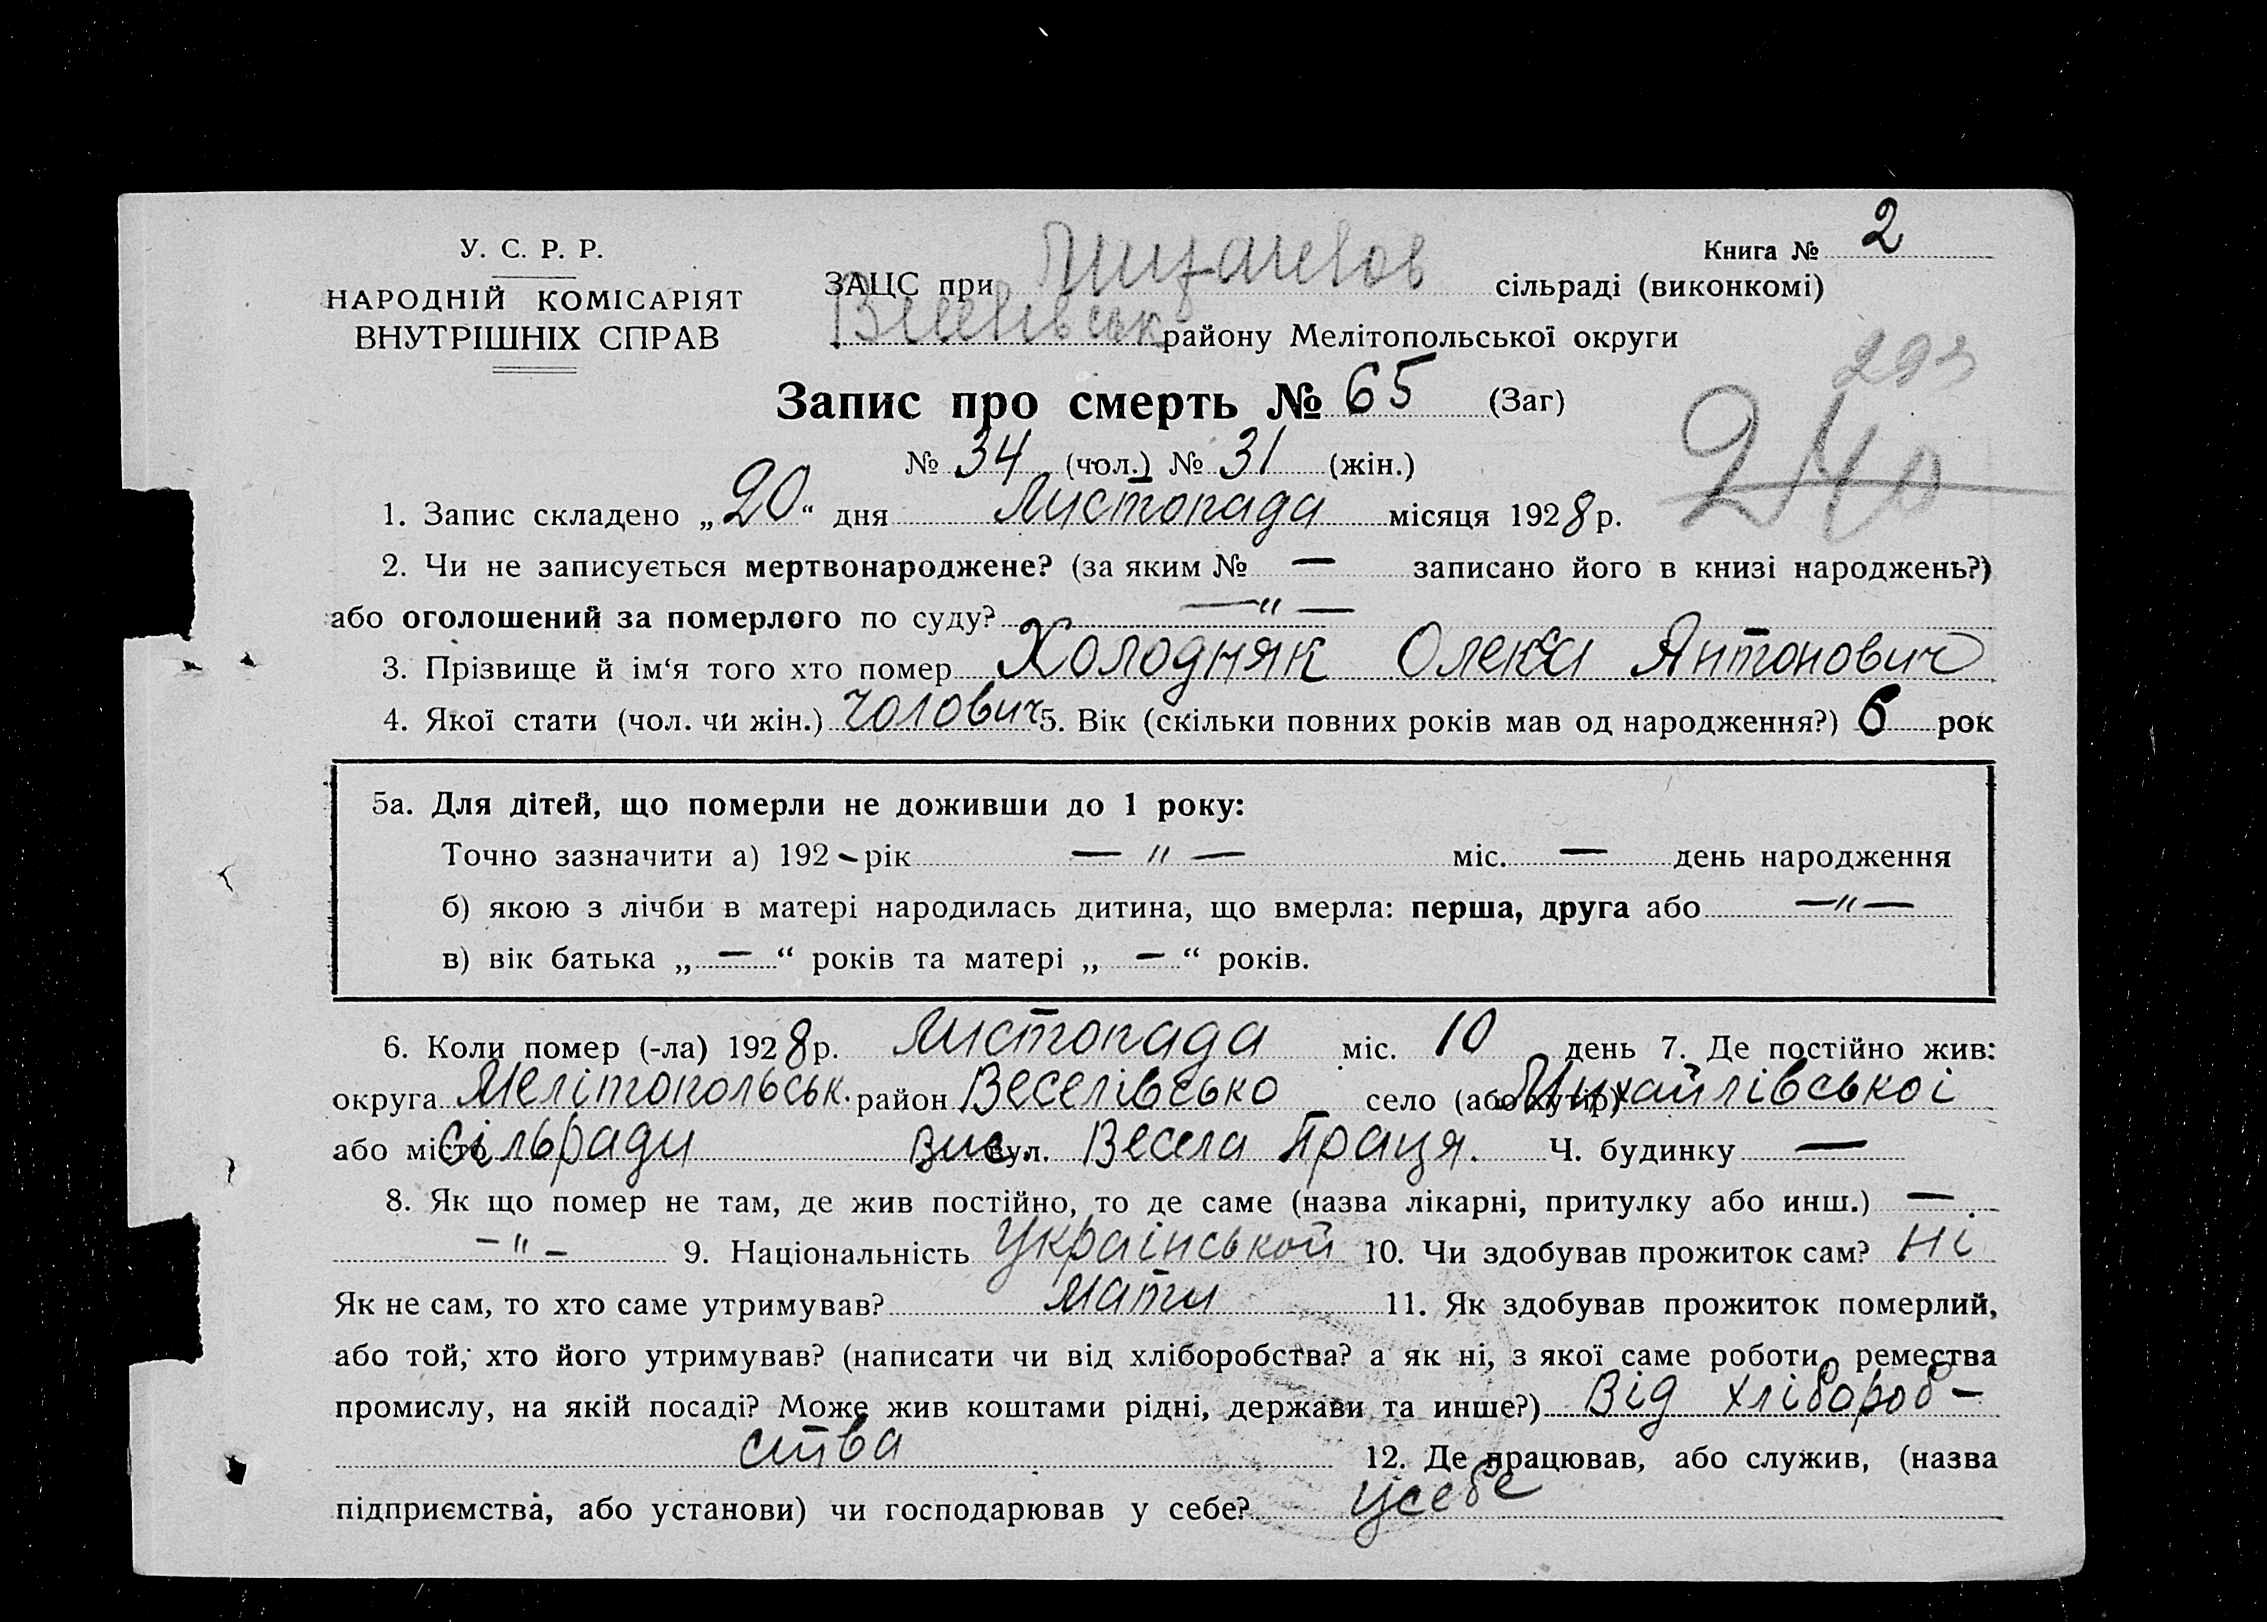 У. С. Р. Р.
НАРОДНІЙ КОМІСАРІЯТ
ВНУТРІШНІХ СПРАВ
Книга № 2
ЗАЦС при сільраді (виконкомі)
району Мелітопольської округи
Запис про смерть № 65 (Заг)
№ 34 (чол.) № 31 (жін.)
240
1. Запис складено „20“ дня Листопада місяця 1928 р.
2. Чи не записується мертвонароджене? (за яким № — записано його в книзі народжень?)
або оголошений за померлого по суду? —〃 —
3. Прізвище й ім‘я того хто помер Холодняк Олекса Антонович
4. Якої стати (чол. чи жін.) чолович 5. Вік (скільки повних років мав од народження?) 6 рок
5а. Для дітей, що померли не доживши до 1 року:
Точно зазначити а) 192 – рік — 〃 — міс. — день народження
б) якою з лічби в матері народилась дитина, що вмерла: перша, друга або — 〃 —
в) вік батька „ — “ років та матері „ — “ років.
6. Коли помер (-ла) 1928 р. Листопада міс. 10 день 7. Де постійно жив:
округа Мелітопольськ. район Веселівсько село (або хутір) Михайлівської
або місто сільради Вис. вул. Весела Праця. Ч. будинку —
8. Як що помер не там, де жив постійно, то де саме (назва лікарні, притулку або инш.) —
— 〃 — 9. Національність Українськой 10. Чи здобував прожиток сам? Ні
Як не сам, то хто саме утримував? Мати 11. Як здобував прожиток померлий,
або той, хто його утримував? (написати чи від хліборобства? а як ні, з якої саме роботи, ремества
промислу, на якій посаді? Може жив коштами рідні, держави та инше?) Від хлібороб-
ства 12. Де працював, або служив, (назва
підприємства, або установи) чи господарював у себе? усебе